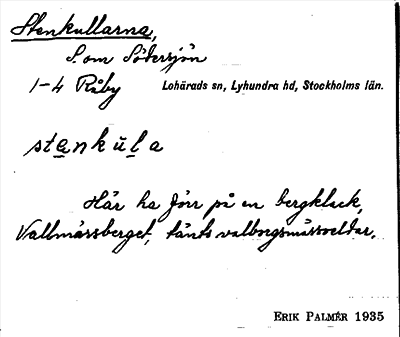 Stenkullarna,
S. om Södersjön
1-4 Råby Lohärads sn, Lyhundra hd, Stockholms län.
stanku̇la
Här ha förr på en bergklack,
Vallmärsberget, tänts valborgsmässoeldar.
ERIK PALMÉR 1935